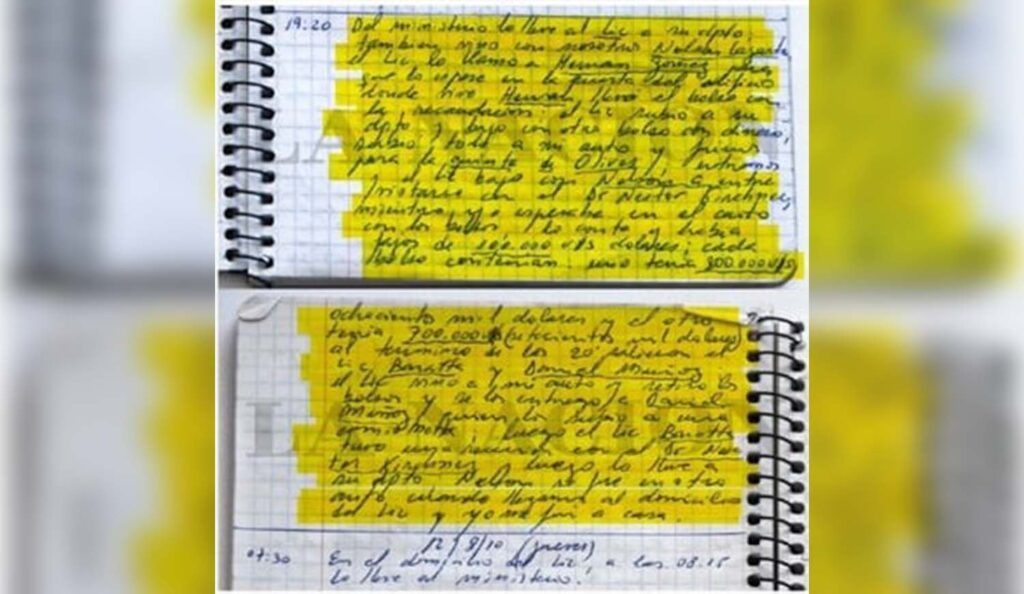 19:20 Del ministerio lo lleve al Lic a su dpto
tambien vino con nosotros Nelson Lazarte
el Lic lo llamo a Hernan Gomez
que lo espere en la puerta del edificio
donde vive Hernan llevo el bolso con
la recaudacion, el Lic subio a su
dpto y bajo con otro bolso con dinero,
subio todo a mi auto y fuimos
para la quinta de Olivos y entramos
el Lic bajo con Nelson a entre
vistarse con el Dr Nestor Kirchner,
mientras yo esperaba en el auto
con los bolsos, los conte y habia
fajos de 100.000 U$S dolares; cada
bolso contenian uno tenia 800.000 U$S
ochocientos mil dolares y el otro
tenia 700.000 (setecientos mil dolares)
al termino de los 20' salieron el
Lic Baratta y Daniel Muñoz
el Lic vino a mi auto y retiro los
bolsos y se los entrego a Daniel
Muñoz quien los subio a una
camioneta, luego el Lic Baratta
tuvo una reunion con el Dr Nes-
tor Kirchner, luego lo lleve a
su dpto Nelson se fue en otro
auto cuando llegamos al domicilio
del Lic y yo me fui a casa.
12/8/10 (jueves)
07:30 En el domicilio del Lic, a las 08.15
lo lleve al ministerio.
LA NACION